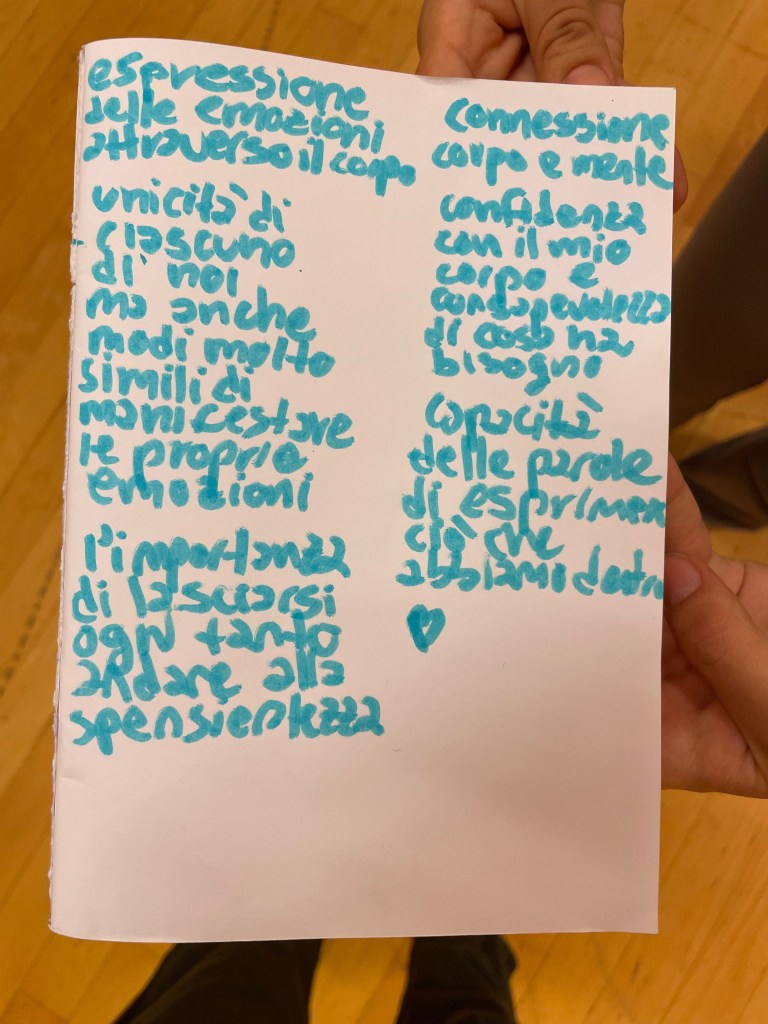 espressione
delle emozioni
attraverso il corpo
unicità di
ciascuno
di noi
ma anche
modi molto
simili di
manifestare
le proprie
emozioni
l'importanza
di lasciarsi
ogni tanto
andare alla
spensieratezza
connessione
corpo e mente
confidenza
con il mio
corpo e
consapevolezza
di cosa ha
bisogno
capacità
delle parole
di esprimere
ciò che
abbiamo dentro